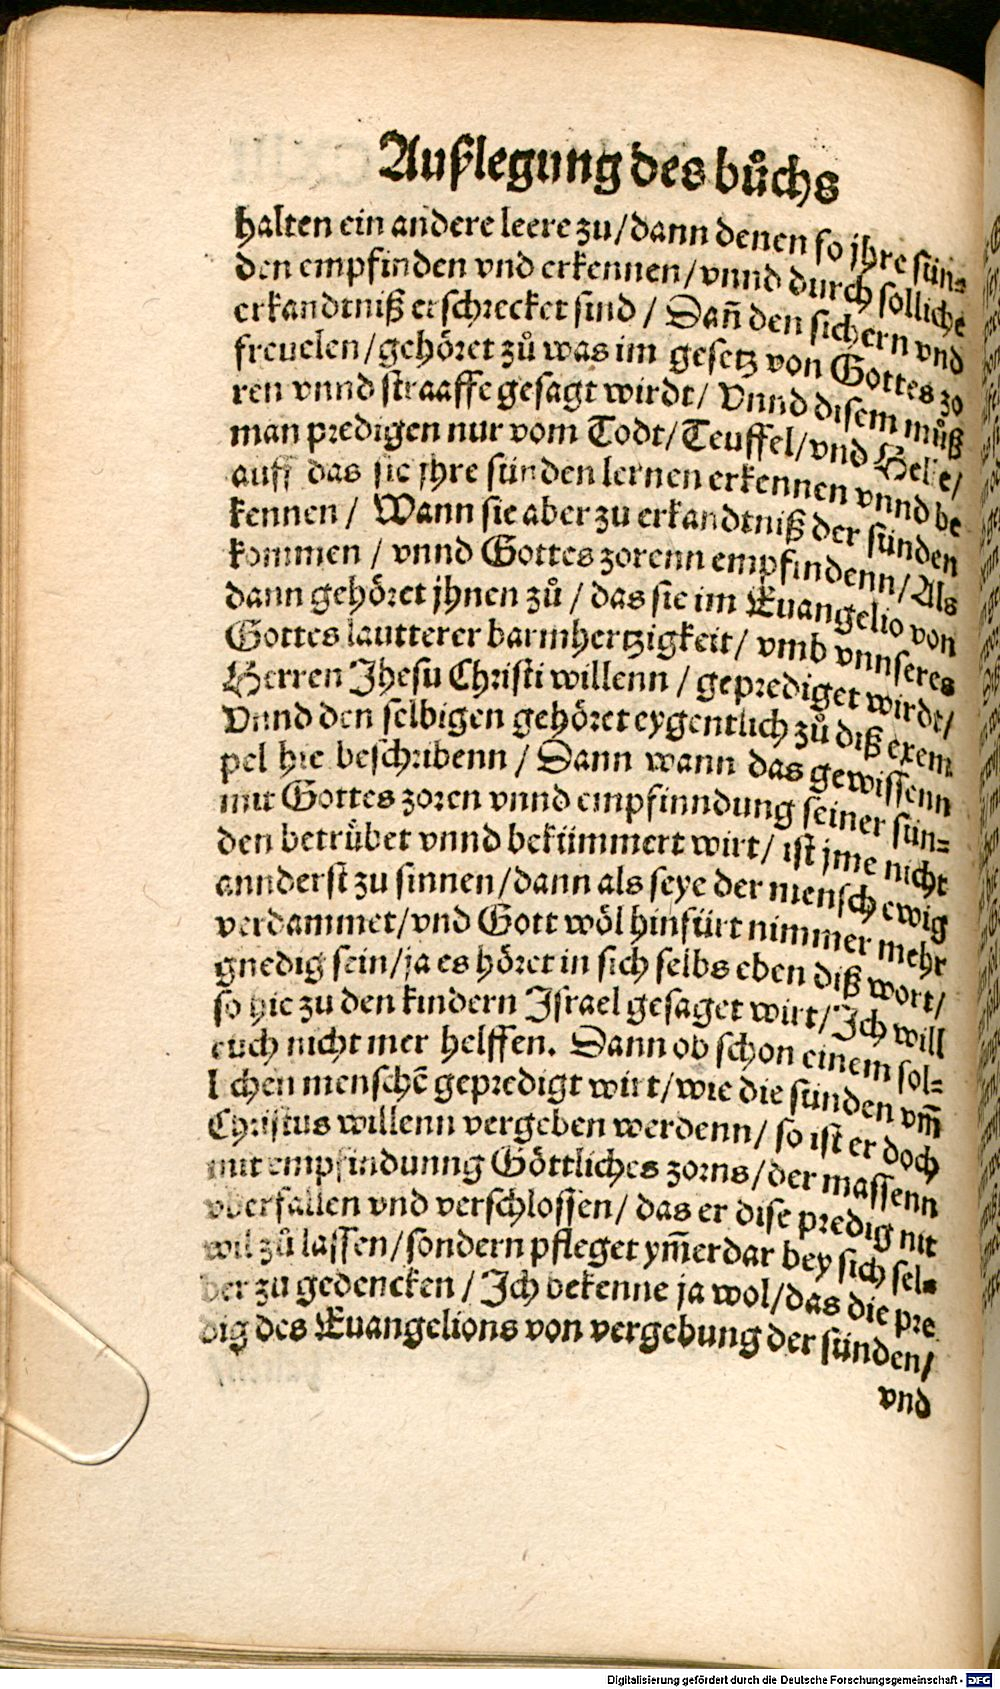 Außlegung des bůchs
halten ein andere leere zu/dann denen so jhre sün-
den empfinden vnd erkennen/vnnd durch solliche
erkandtniß erschrecket sind / Dañ den sichern vnd
freuelen/gehöret zů was im gesetz von Gottes zo
ren vnnd straaffe gesagt wirdt/ Vnnd disem můß
man predigen nur vom Todt/Teuffel/vnd Helle/
auff das sie jhre sünden lernen erkennen vnnd be
kennen / Wann sie aber zu erkandtniß der sünden
kommen / vnnd Gottes zorenn empfindenn/Als
dann gehöret jhnen zů / das sie im Euangelio von
Gottes lautterer barmhertzigkeit/ vmb vnnseres
Herren Jhesu Christi willenn / geprediget wirdt/
Vnnd den selbigen gehöret eygentlich zů diß exem
pel hie beschribenn / Dann wann das gewissenn
mit Gottes zoren vnnd empfinndung seiner sün-
den betrübet vnnd bekümmert wirt/ ist jme nicht
annderst zu sinnen/dann als seye der mensch ewig
verdammet/vnd Gott wöl hinfürt nimmer mehr
gnedig sein/ja es höret in sich selbs eben diß wort/
so hie zu den kindern Israel gesaget wirt/Ich will
euch nicht mer helffen. Dann ob schon einem sol-
lichen menschẽ gepredigt wirt/wie die sünden vm̃
Christus willenn vergeben werdenn/ so ist er doch
mit empfindunng Göttliches zorns/der massenn
vberfallen vnd verschlossen/ das er dise predig nit
wil zů lassen/sondern pfleget ym̃erdar bey sich sel-
ber zu gedencken / Ich bekenne ja wol/das die pre
dig des Euangelions von vergebung der sünden/
vnd
Digitalisierung gefördert durch die Deutsche Forschungsgemeinschaft - DFG